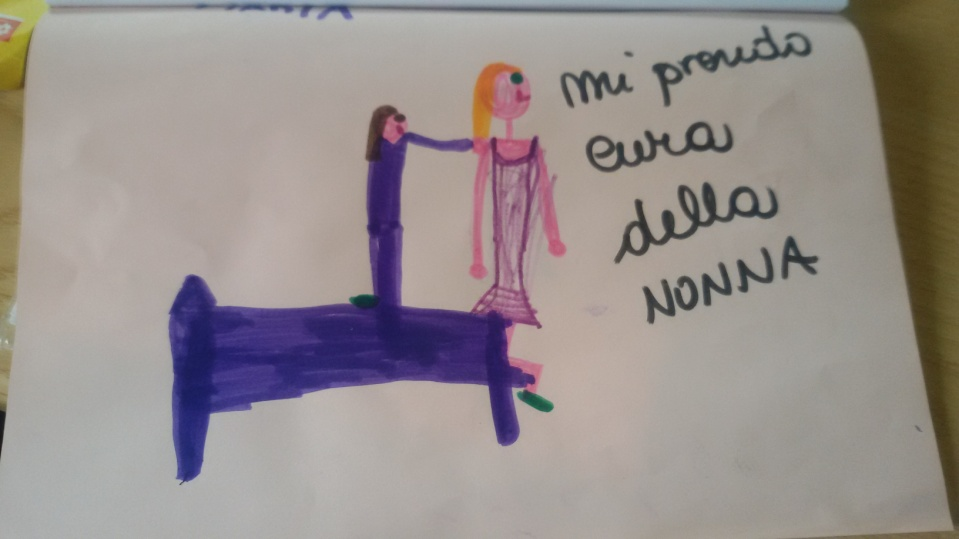 mi prendo
cura
della
NONNA